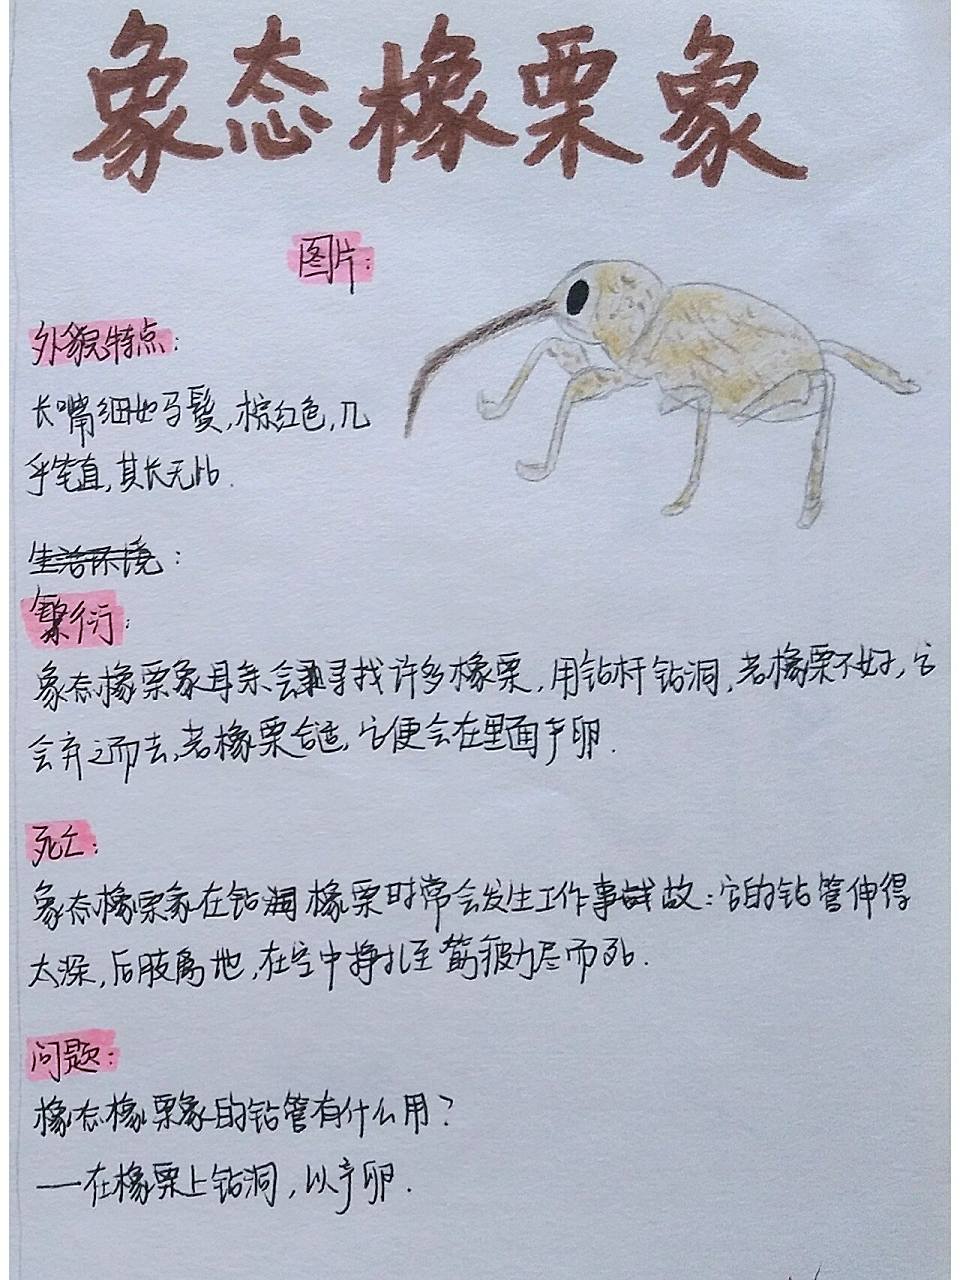 象态橡栗象
图片:
外貌特点:
长嘴细如马鬃,棕红色,几
乎笔直,其长无比.
生活环境:
繁衍:
象态橡栗象母亲会寻找许多橡栗,用钻杆钻洞,若橡栗不好,它
会弃之而去,若橡栗合适,它便会在里面产卵.
死亡:
象态橡栗象在钻橡栗时常会发生工作事故:它的钻管伸得
太深,后肢离地,在空中挣扎至筋疲力尽而死.
问题:
橡态橡栗象的钻管有什么用?
—在橡栗上钻洞,以产卵.